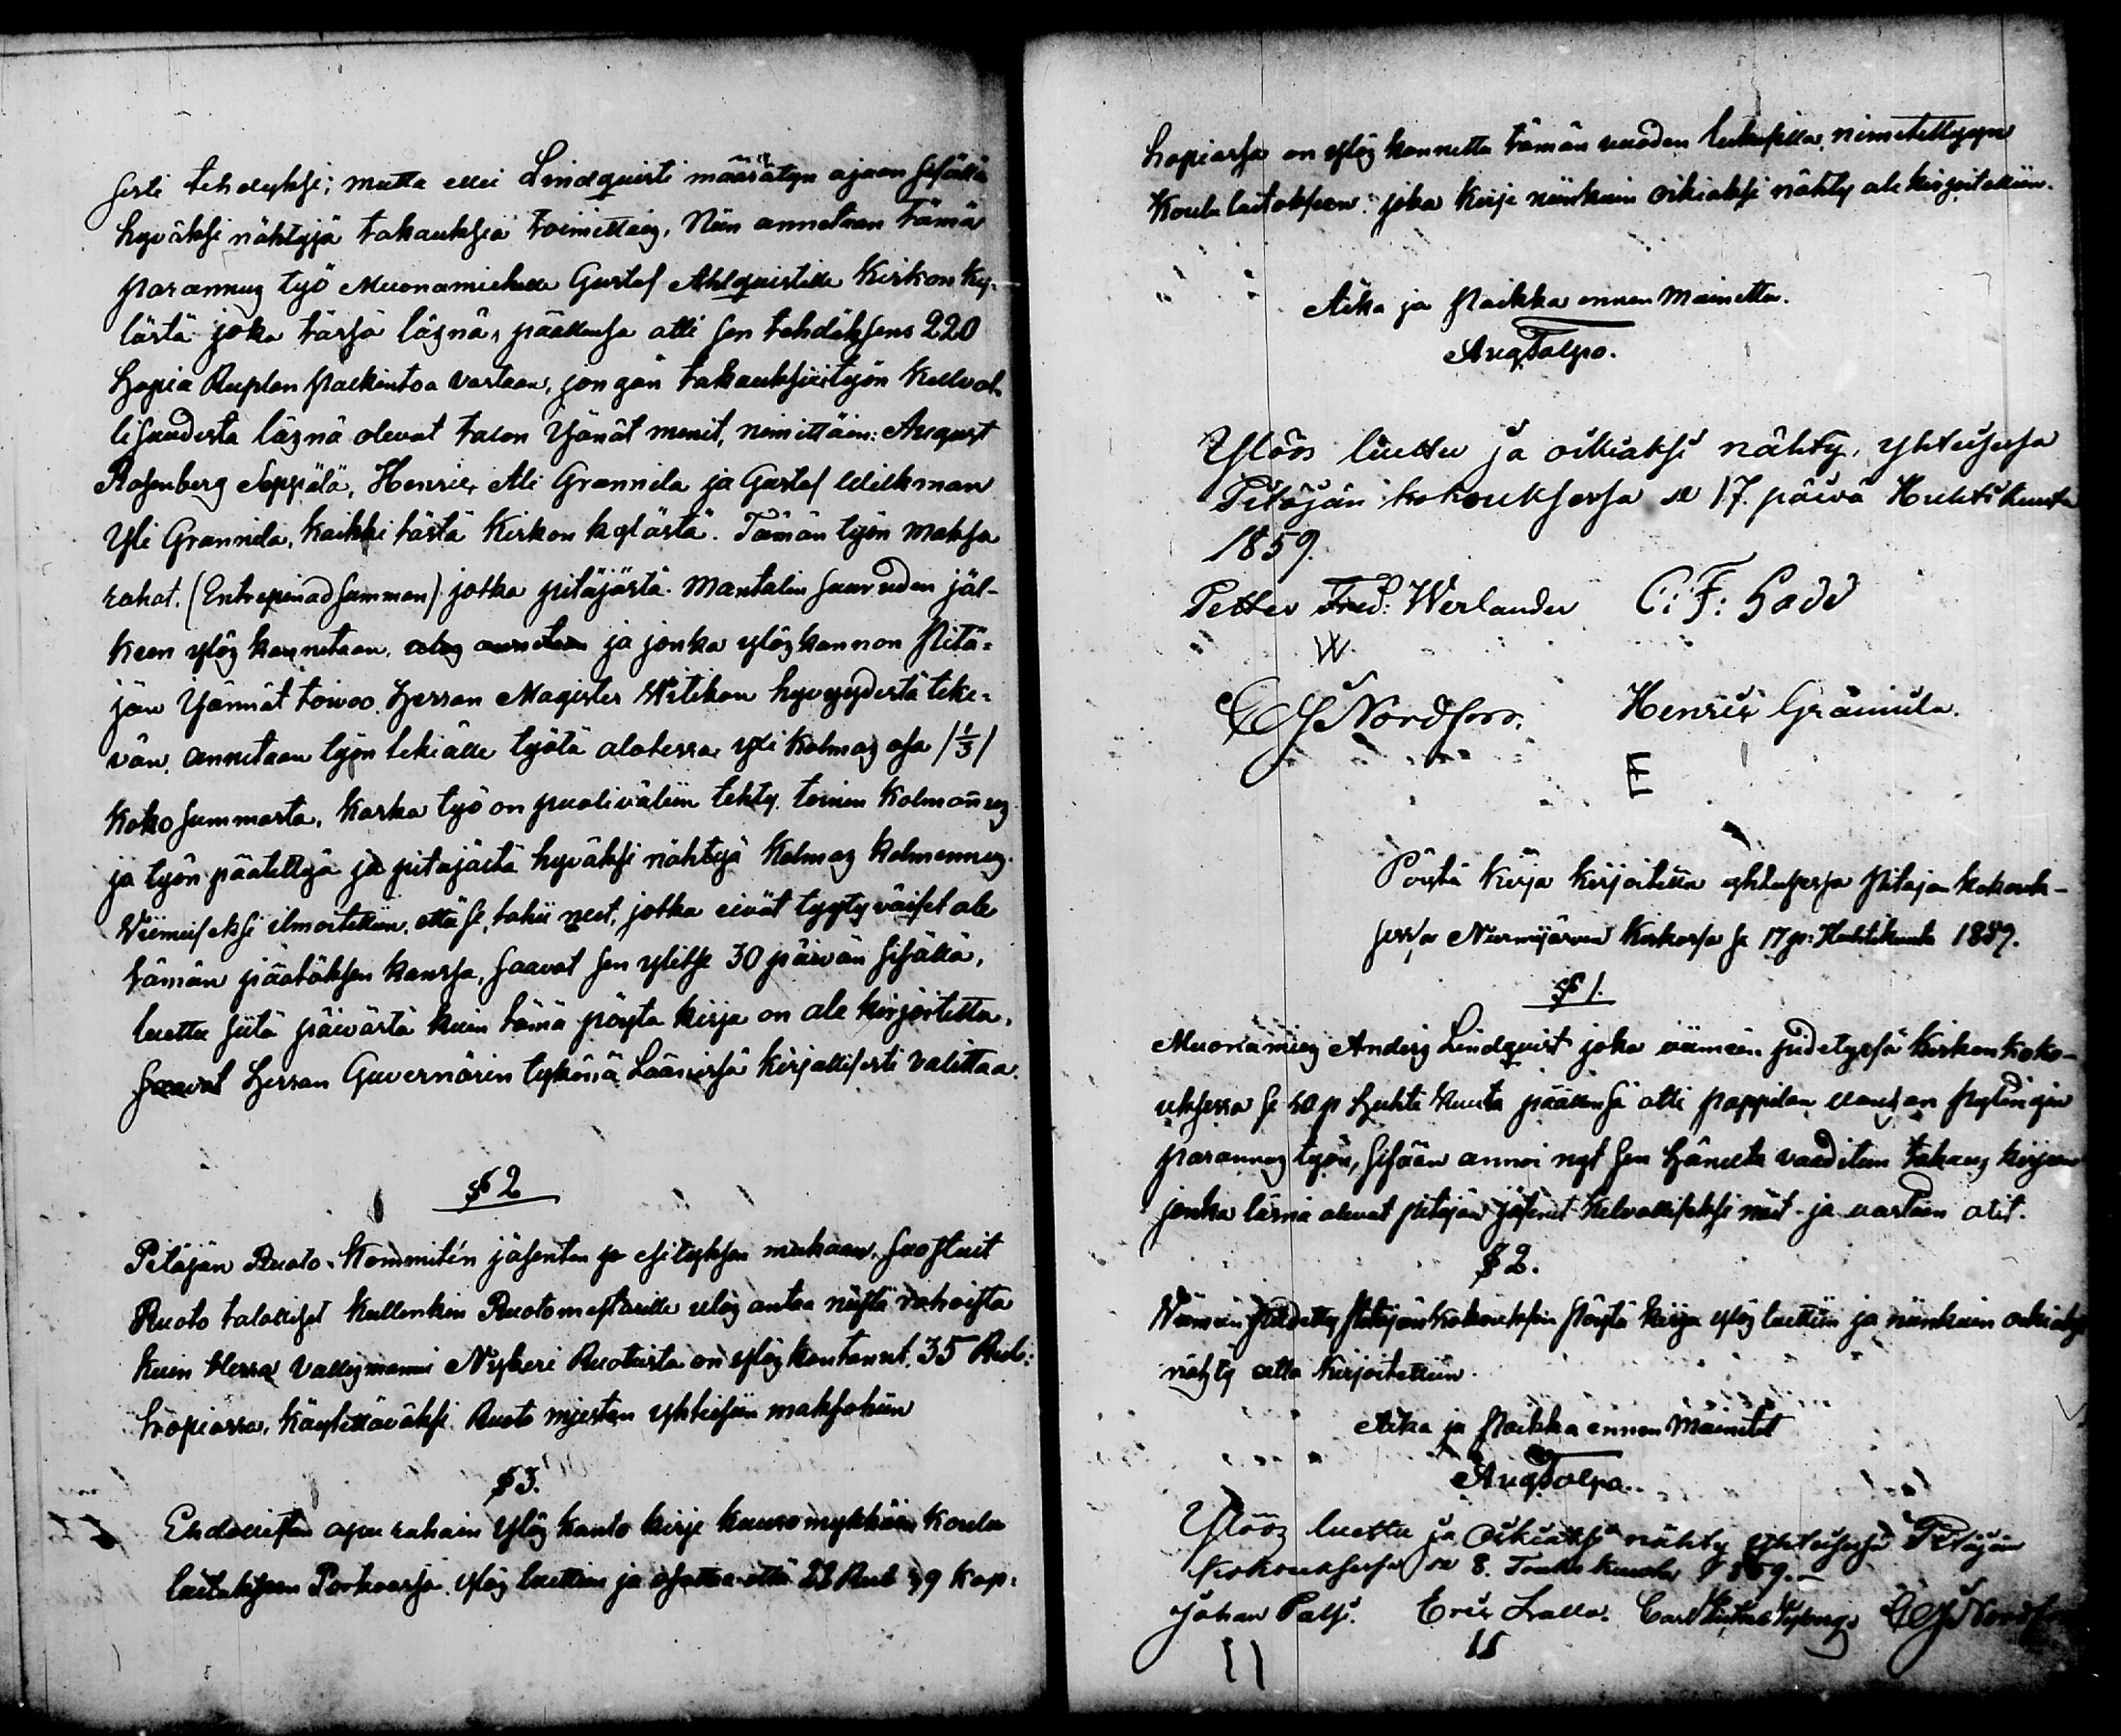 sesti tehdyksi; mutta ellei Lindquisti määrätyn ajaan sisällä
hyväksi nähtyjä takauksia toimittais, Niin annetaan tämä
parannus työ Muonamiehelle Gustaf Ahlquistille Kirkon ky-
lästä joka tässä läsnä, päällensä otti sen tehdäksens 220
Hopia Ruplan palkintoa vastaan, jongan takauksiin työn kelvol-
lisuudesta läsnä olevat talon Isänät menit, nimittäin: August
Rosenberg Seppälä, Henric Ali Grannila ja Gustaf Wilkman
Yli Grannila, kaikki tästä Kirkon kylästä. Tämän työn maksa
rahat. (Entrepenad summan) jotka pitäjästä Mantalin suuruden jäl-
keen ylös kannetaan, ja jonka ylöskannon Pitä-
jän Isännät toivoo Herran Magister Witikan hyvyydestä teke-
vän, annetaan työn tekiälle työtä alotessa yksi kolmas osa /⅓/
koko summasta, koska työ on puoliväliin tehty toinen kolmannes
ja työn päätettyä ja pitäjästä hyväksi nähtyä kolmas kolmannes.
Viimeiseksi ilmoitettiin, että se, tahi neet, jotka eivät tyytyväiset ole
tämän päätöksen kanssa, saavat sen ylitse 30 päivän sisällä,
luettu siitä päivästä kuin tämä pöytä kirja on ala kirjoitettu,
saavat Herran Guvernörin tykönä Läänissä kirjallisesti valittaa.
§ 2
Pitäjän Ruoto-Kommitén jäsenten ja esityksen mukaan, suostuit
Ruoto talolliset kullenkin Ruotomestarille ulos antaa niistä rahoista
kuin Herra Vallesmanni Nyberi Ruotuista on ylös kantanut, 35 Rub:
hopiassa, käytettäväksi Ruoto miesten yhteisiin maksohiin
§ 3.
Ehdollisten apu rahain ylös kanto kirje kuuromykkäin koulu
laitokseen Porkoossa, ylös luettiin ja osottaa että 22 Rub 39 kop:
hopiassa on ylös kannettu tämän vuoden nimitettyyn
Koulu laitokseen: joka kirje niinkuin oikiaksi nähty ale kirjoitettiin.
Aika ja Paikka ennen mainittu.
Aug Talpo.
Ylöös luettu ja oikiaksi nähty, yhteisessa
Pitäjän kokouksessa se 17. päivä Huhtikuuta
1859.
Petter Fred: Werlander C: F: Gadd
W.
Nordfors. Henric Gränuila.
E
Pöytä kirja kirjoitettu yhteisessa Pitäjän kokouk-
sessa Nurmijärven Kirkossa se 17 p: Huhtikuuta 1859.
§ 1.
Muonamies Anders Lindquist joka viimein pidetyssä Kirkon koko-
uksessa se 10 p Huhti kuuta päällensä otti pappilan
parannus työn, sisään annoi nyt sen häneltä vaaditun takaus kirjan
jonka läsnä olevat pitäjän jäsenet kelvolliseksi näit ja vastaan otit.
§ 2.
Viimein pidetty Pitäjänkokouksen Pöytä kirja ylös luettiin ja niinkuin oikiaksi
nähty alla kirjoitettiin.
Aika ja Paikka ennen Mainitut
Aug Talpo.
Ylöös luettu ja Oikiaksi nähty yhteisesä Pitäjän
kokouksessa se 8. Touko kuuta 1859.
Johan Palsi. Eric Lalla. Carl Gustaf Nyberg. Nordfors